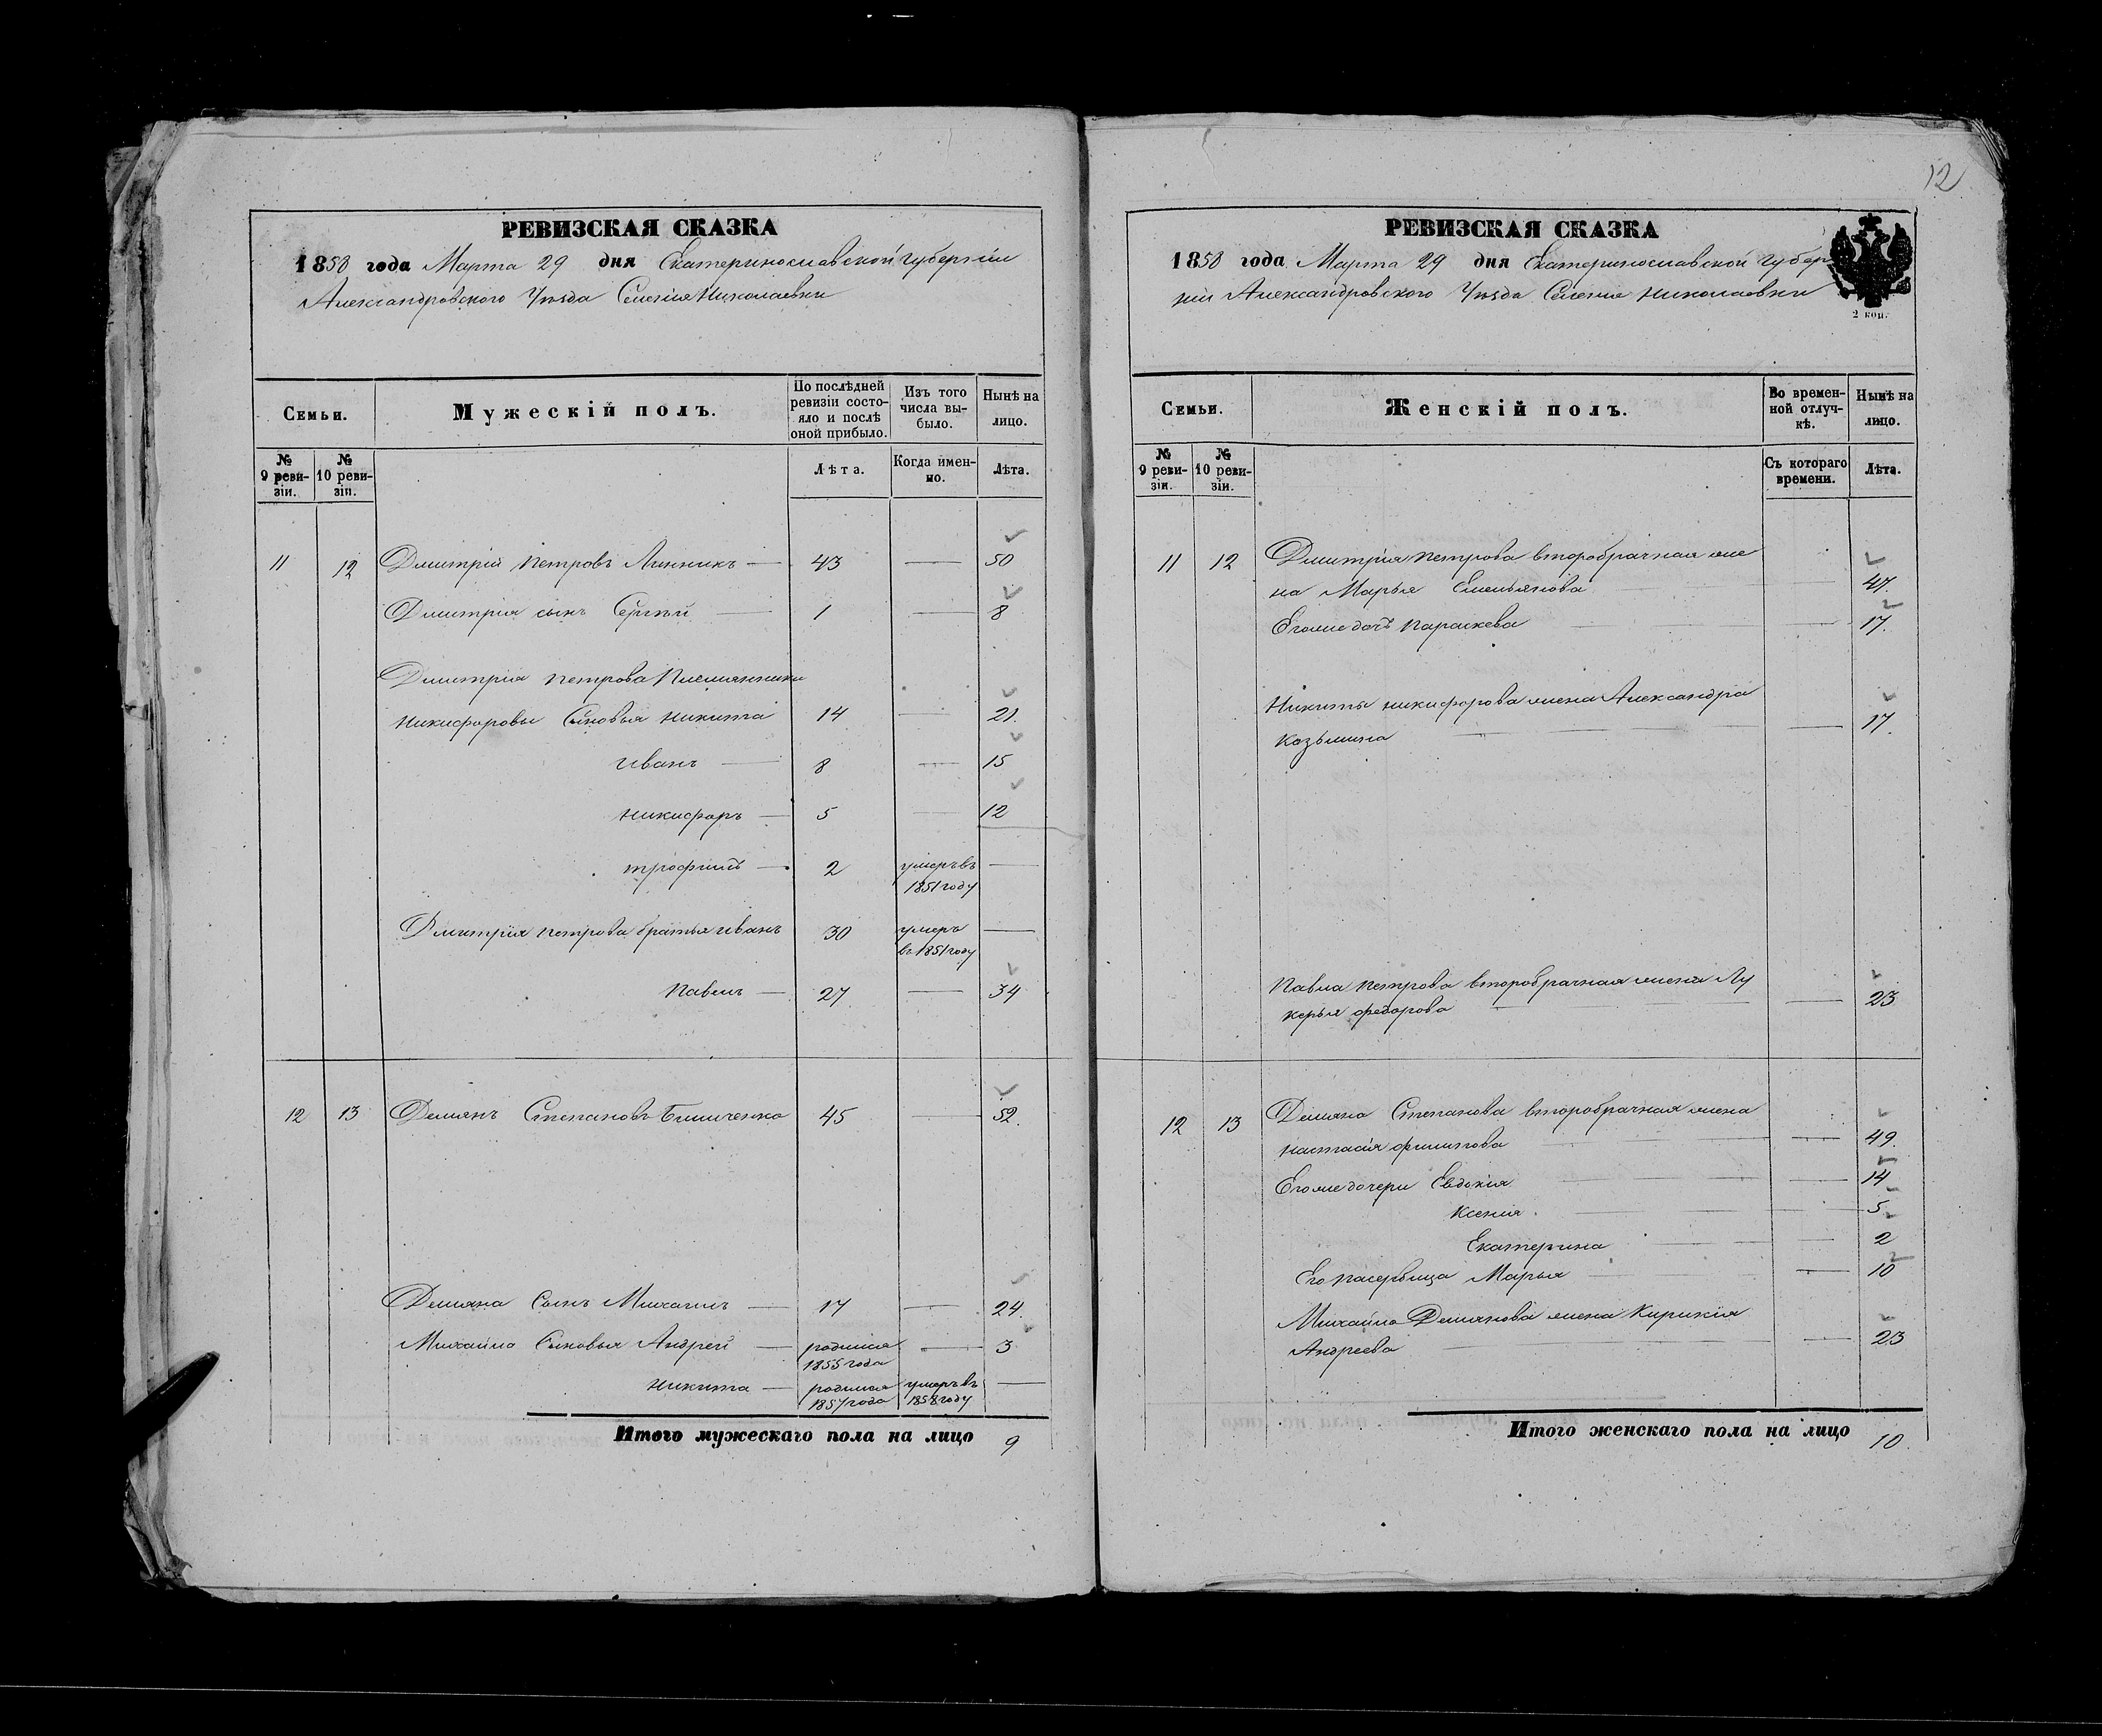 12
РЕВИЗСКАЯ СКАЗКА
1858 года Марта 29 дня Екатеринославской Губернiи
Александровского Уѣзда Селенiя Николаевки
Семьи.
Мужескiй полъ.
По послѣдней ревизiи состо-
яло и послѣ
оной прибыло.
Изъ того
числа вы-
было.
Нынѣ на
лицо.
№
9 реви-
зiи.
№
10 реви-
зiи.
Лѣта.
Когда имен-
но.
Лѣта.
11 12 Дмитрiй Петровъ Линникъ — 43 — 50
Дмитрiя сынъ Сергѣй — 1 — 8
Дмитрiя Петрова Племянники
Никифоровы Сыновья Никита 14 — 21.
Иванъ — 8 — 15
Никифоръ — 5 — 12
Трофимъ — 2 умеръ въ —
1851 году
Дмитрiя Петрова братья Иванъ 30 умеръ —
въ 1851 году
Павелъ — 27 — 34
12 13 Демянъ Степановъ 45 — 52.
Демяна Сынъ Михаилъ — 17 — 24.
Михайла Сыновья Андрей — родился — 3
1855 года
Никита — родился умеръ въ —
1857 года 1858 году
Итого мужескаго пола на лицо 9
РЕВИЗСКАЯ СКАЗКА
1858 года Марта 29 дня Екатеринославской Губер
нiи Александровского Уѣзда Селенiя Николаевки
2 коп.
Семьи.
Женскiй полъ.
Во времен-
ной отлуч-
кѣ.
Нынѣ на
лицо.
№
9 реви-
зiи.
№
10 реви-
зiи.
Съ котораго
времени.
Лѣта.
11 12 Дмитрiя Петрова второбрачная же
на Марья Емельянова — 47.
Егоже дочь Параскева — 17.
Никиты Никифорова жена Александра
Козьмина — 17.
Павла Петрова второбрачная жена Лу
керья Федорова — 23
12 13 Демяна Степанова второбрачная жена
Настасiя Филипова — 49.
Егоже дочери Евдокiя — 14
Ксенiя — 5.
Екатерина — 2
Его пасербица Марья — 10
Михайла Демянова жена Кирикiя
Андреева — 23
Итого женскаго пола на лицо 10.